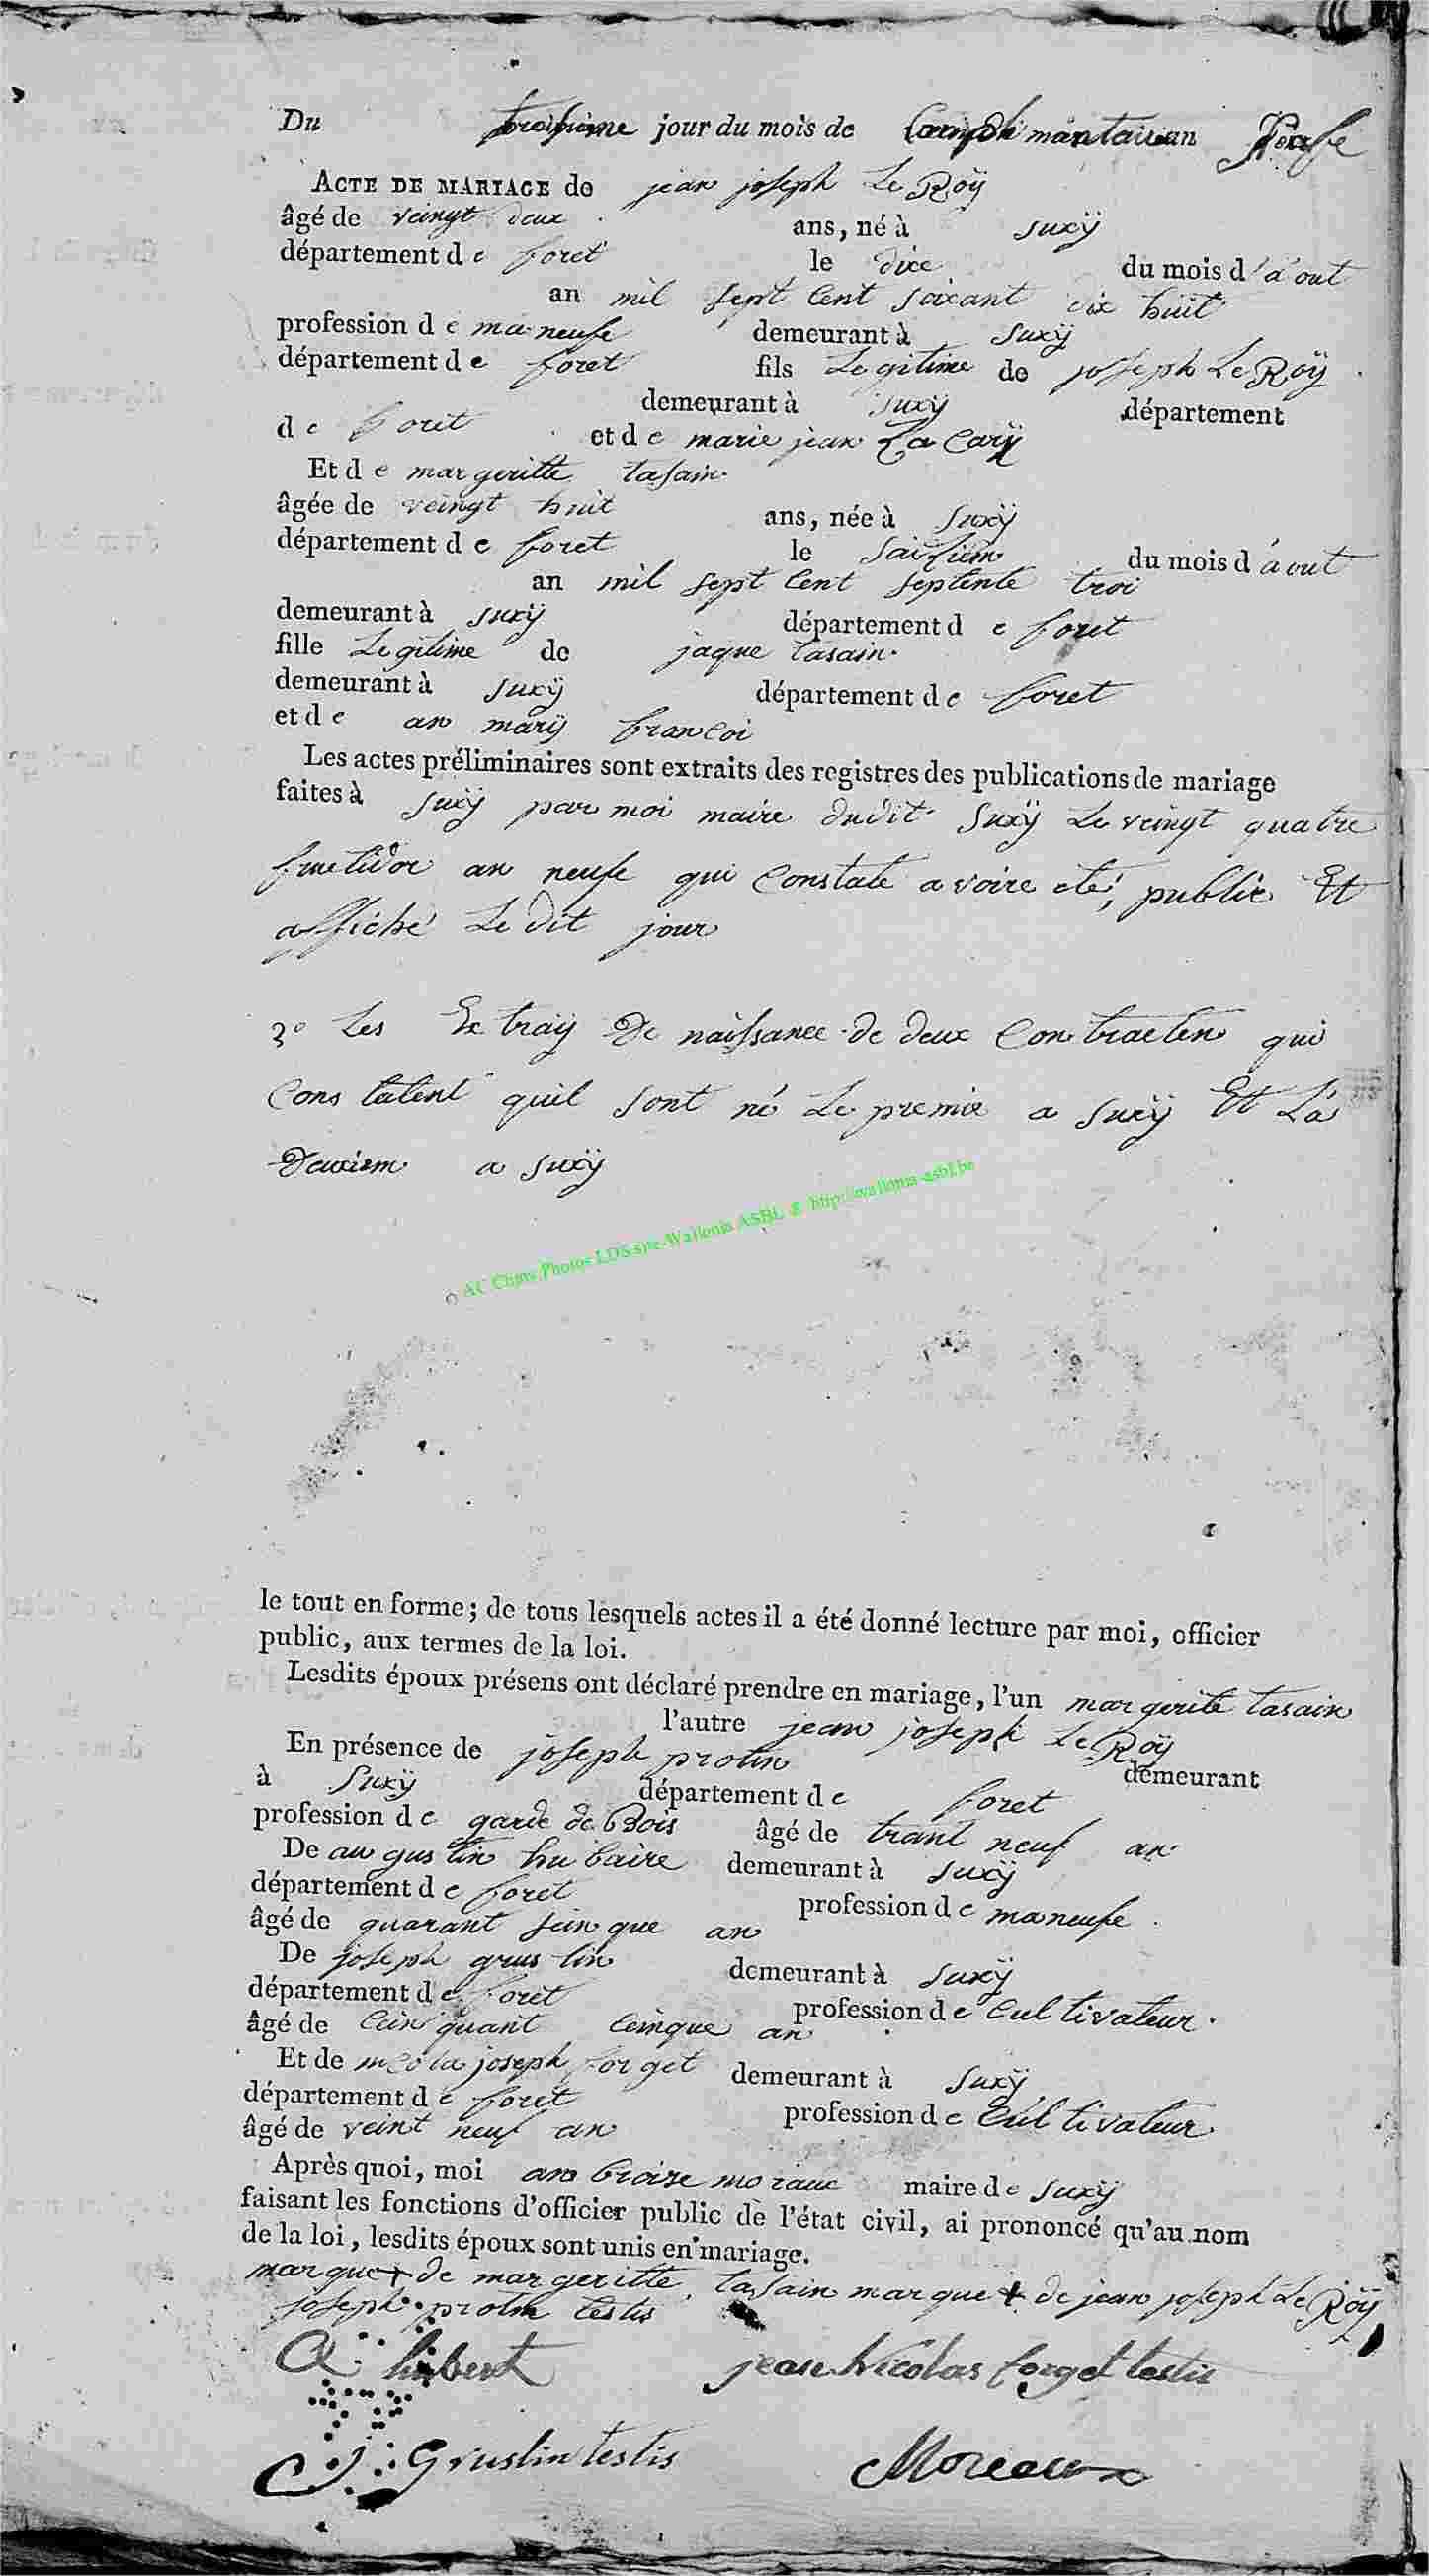 Du troisieme jour du mois de Complémantair an Neufe
ACTE DE MARIAGE de jean joseph Le Roÿ
âgé de veingt deux ans, né à suxÿ
département de foret le dixe du mois d'aout
an mil sept Cent soixant dix huit
profession de maneufe demeurant à Suxÿ
département de foret fils Legitime de joseph Le Roÿ
demeurant à Suxÿ département
de foret et de marie jean La Carÿ
Et de margeritte tasain
âgée de veingt huit ans, née à Suxÿ
département de foret le du mois d'aout
an mil sept Cent septente troi
demeurant à suxÿ département de foret
fille Legitime de jaque tasain
demeurant à suxÿ département de foret
et de an marÿ francoi
Les actes préliminaires sont extraits des registres des publications de mariage
faites à Suxÿ par moi maire dudit Suxÿ Le veingt quatre
fructidor an neufe qui Constate avoire eté, publié Et
affiché Le dit jour
2° Les Extraÿ De naissance de deux Contracten qui
Constatent quil sont né Le premie a Suxÿ Et La
Deuxiem a suxÿ
© AC Chiny Photos LDS site Wallonia ASBL & http://wallonia-asbl.be
le tout en forme; de tous lesquels actes il a été donné lecture par moi, officier
public, aux termes de la loi.
Lesdits époux présens ont déclaré prendre en mariage, l'un margerite tasain
l'autre jean joseph Le Roÿ
En présence de joseph protin demeurant
à Suxÿ département de foret
profession de garde de Bois âgé de trant neuf an
De augustin hubaire demeurant à suxÿ
département de foret profession de maneufe
âgé de quarant seinque an
De joseph grustin demeurant à suxÿ
département de foret profession de Cultivateur
âgé de Ceinquant Ceinque an
Et de nicola joseph forget demeurant à Suxÿ
département de foret profession de Cultivateur
âgé de veint neuf an
Après quoi, moi ambroise moraux maire de Suxÿ
faisant les fonctions d'officier public de l'état civil, ai prononcé qu'au nom
de la loi, lesdits époux sont unis en mariage.
marque + de margeritte tasain marque + de jean joseph Le Roÿ
Joseph protin testis
A hubert jean Nicolas forget testis
J Grustin testis Moreaux